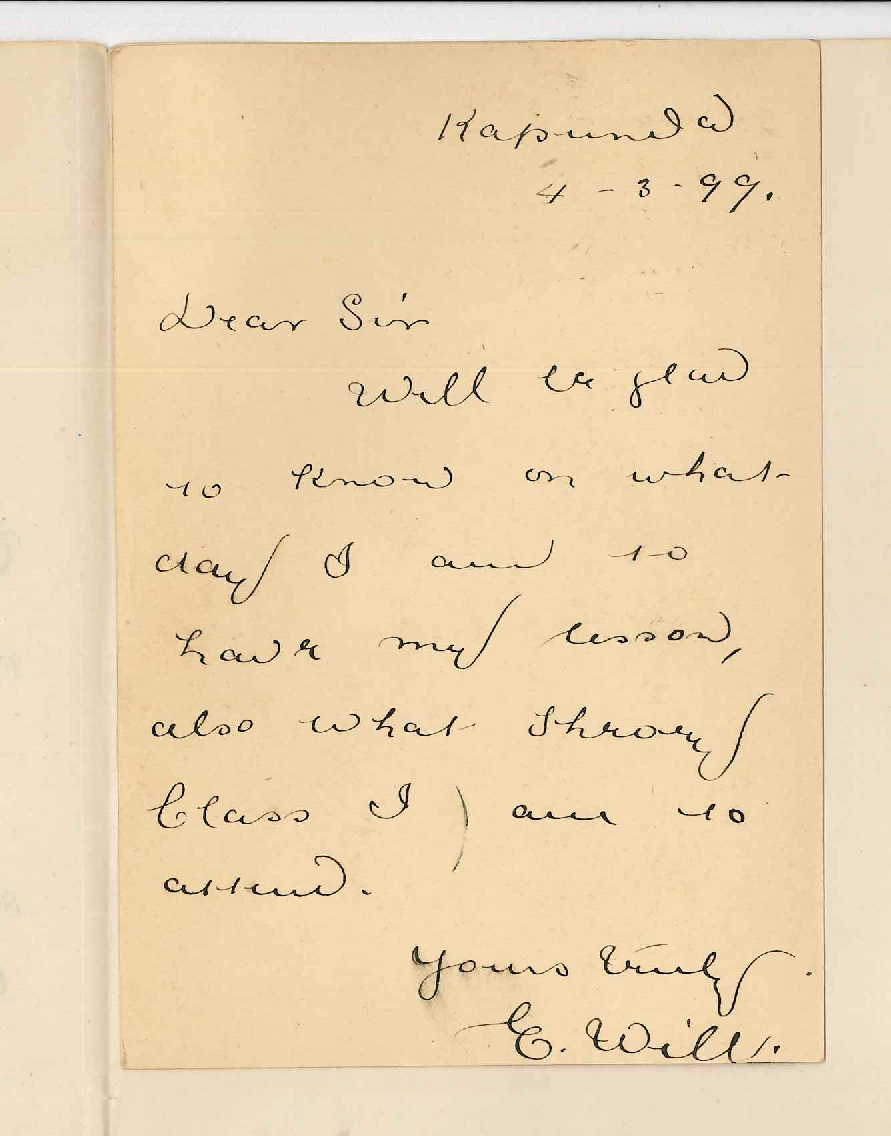 Kapunda
4 - 3 - 99.
Dear Sir
Will be glad
to know on what
day I am to
have my lesson,
also what Theory
Class I am to
attend.
Yours truly.
E. Will.